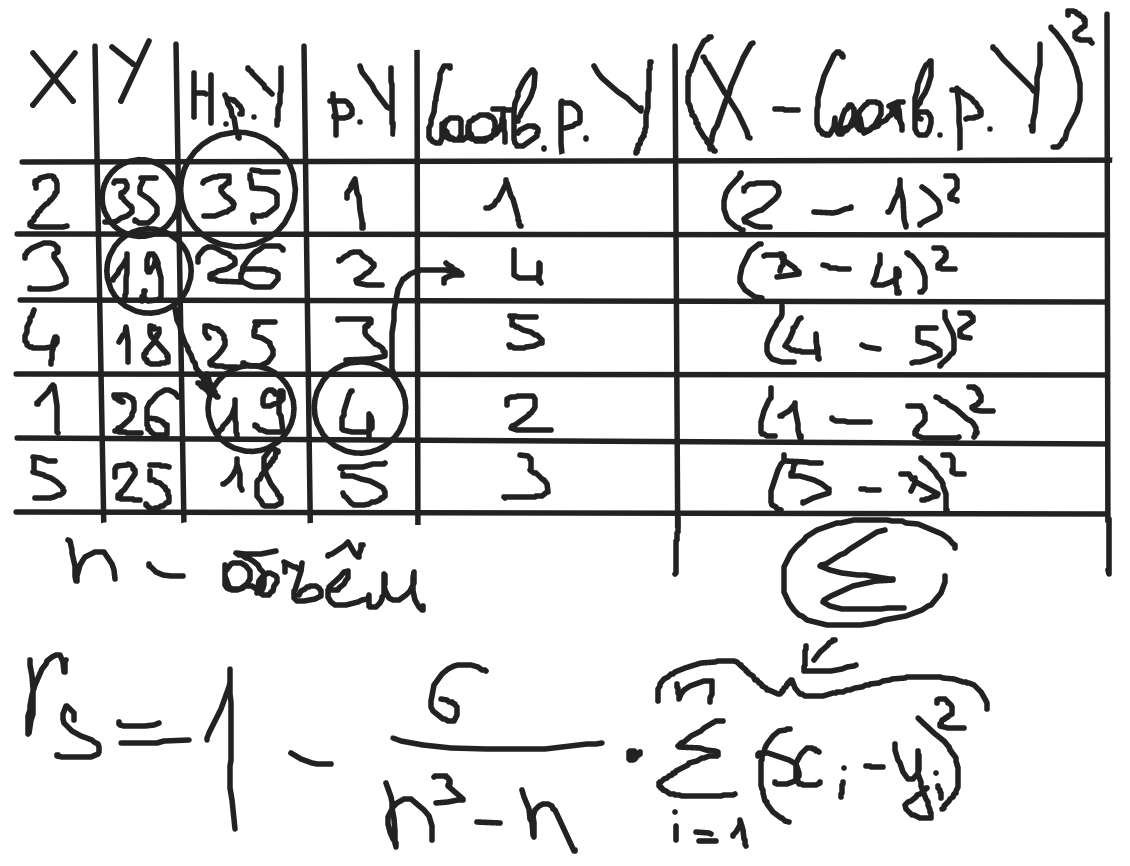 X Y Н.р.Y р.Y Соотв.р.Y (X - Соотв.р.Y)²
2 35 35 1 1 (2 - 1)²
3 19 26 2 4 (3 - 4)²
4 18 25 3 5 (4 - 5)²
1 26 19 4 2 (1 - 2)²
5 25 18 5 3 (5 - 3)²
n - объём Σ
r_s = 1 - 6/(n³ - n) · Σ_{i=1}^{n} (x_i - y_i)²